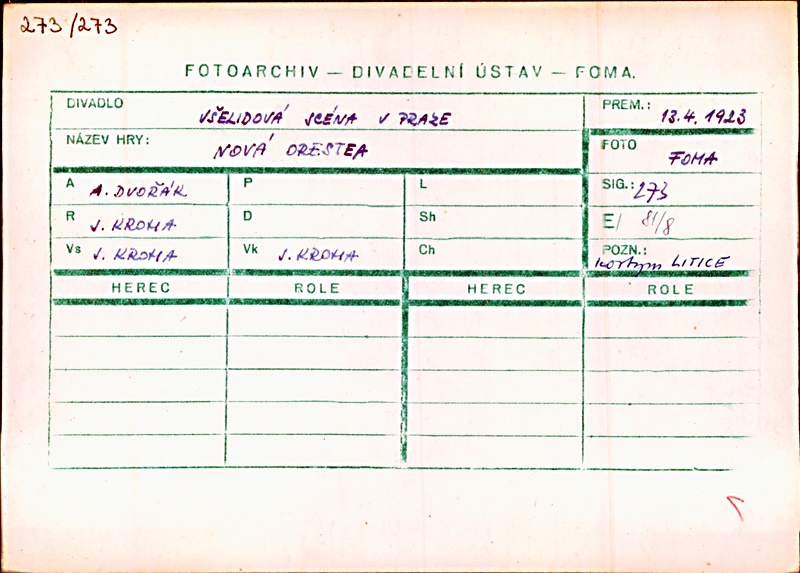 273/273
FOTOARCHIV — DIVADELNÍ ÚSTAV — FOMA.
DIVADLO VŠELIDOVÁ SCÉNA V PRAZE PREM.: 13.4.1923
NÁZEV HRY: NOVÁ ORESTEA FOTO FOMA
A A. DVOŘÁK P L SIG.: 273
R J. KROHA D Sh E/ 81/8
Vs J. KROHA Vk J. KROHA Ch POZN.: kostym LITICE
HEREC ROLE HEREC ROLE